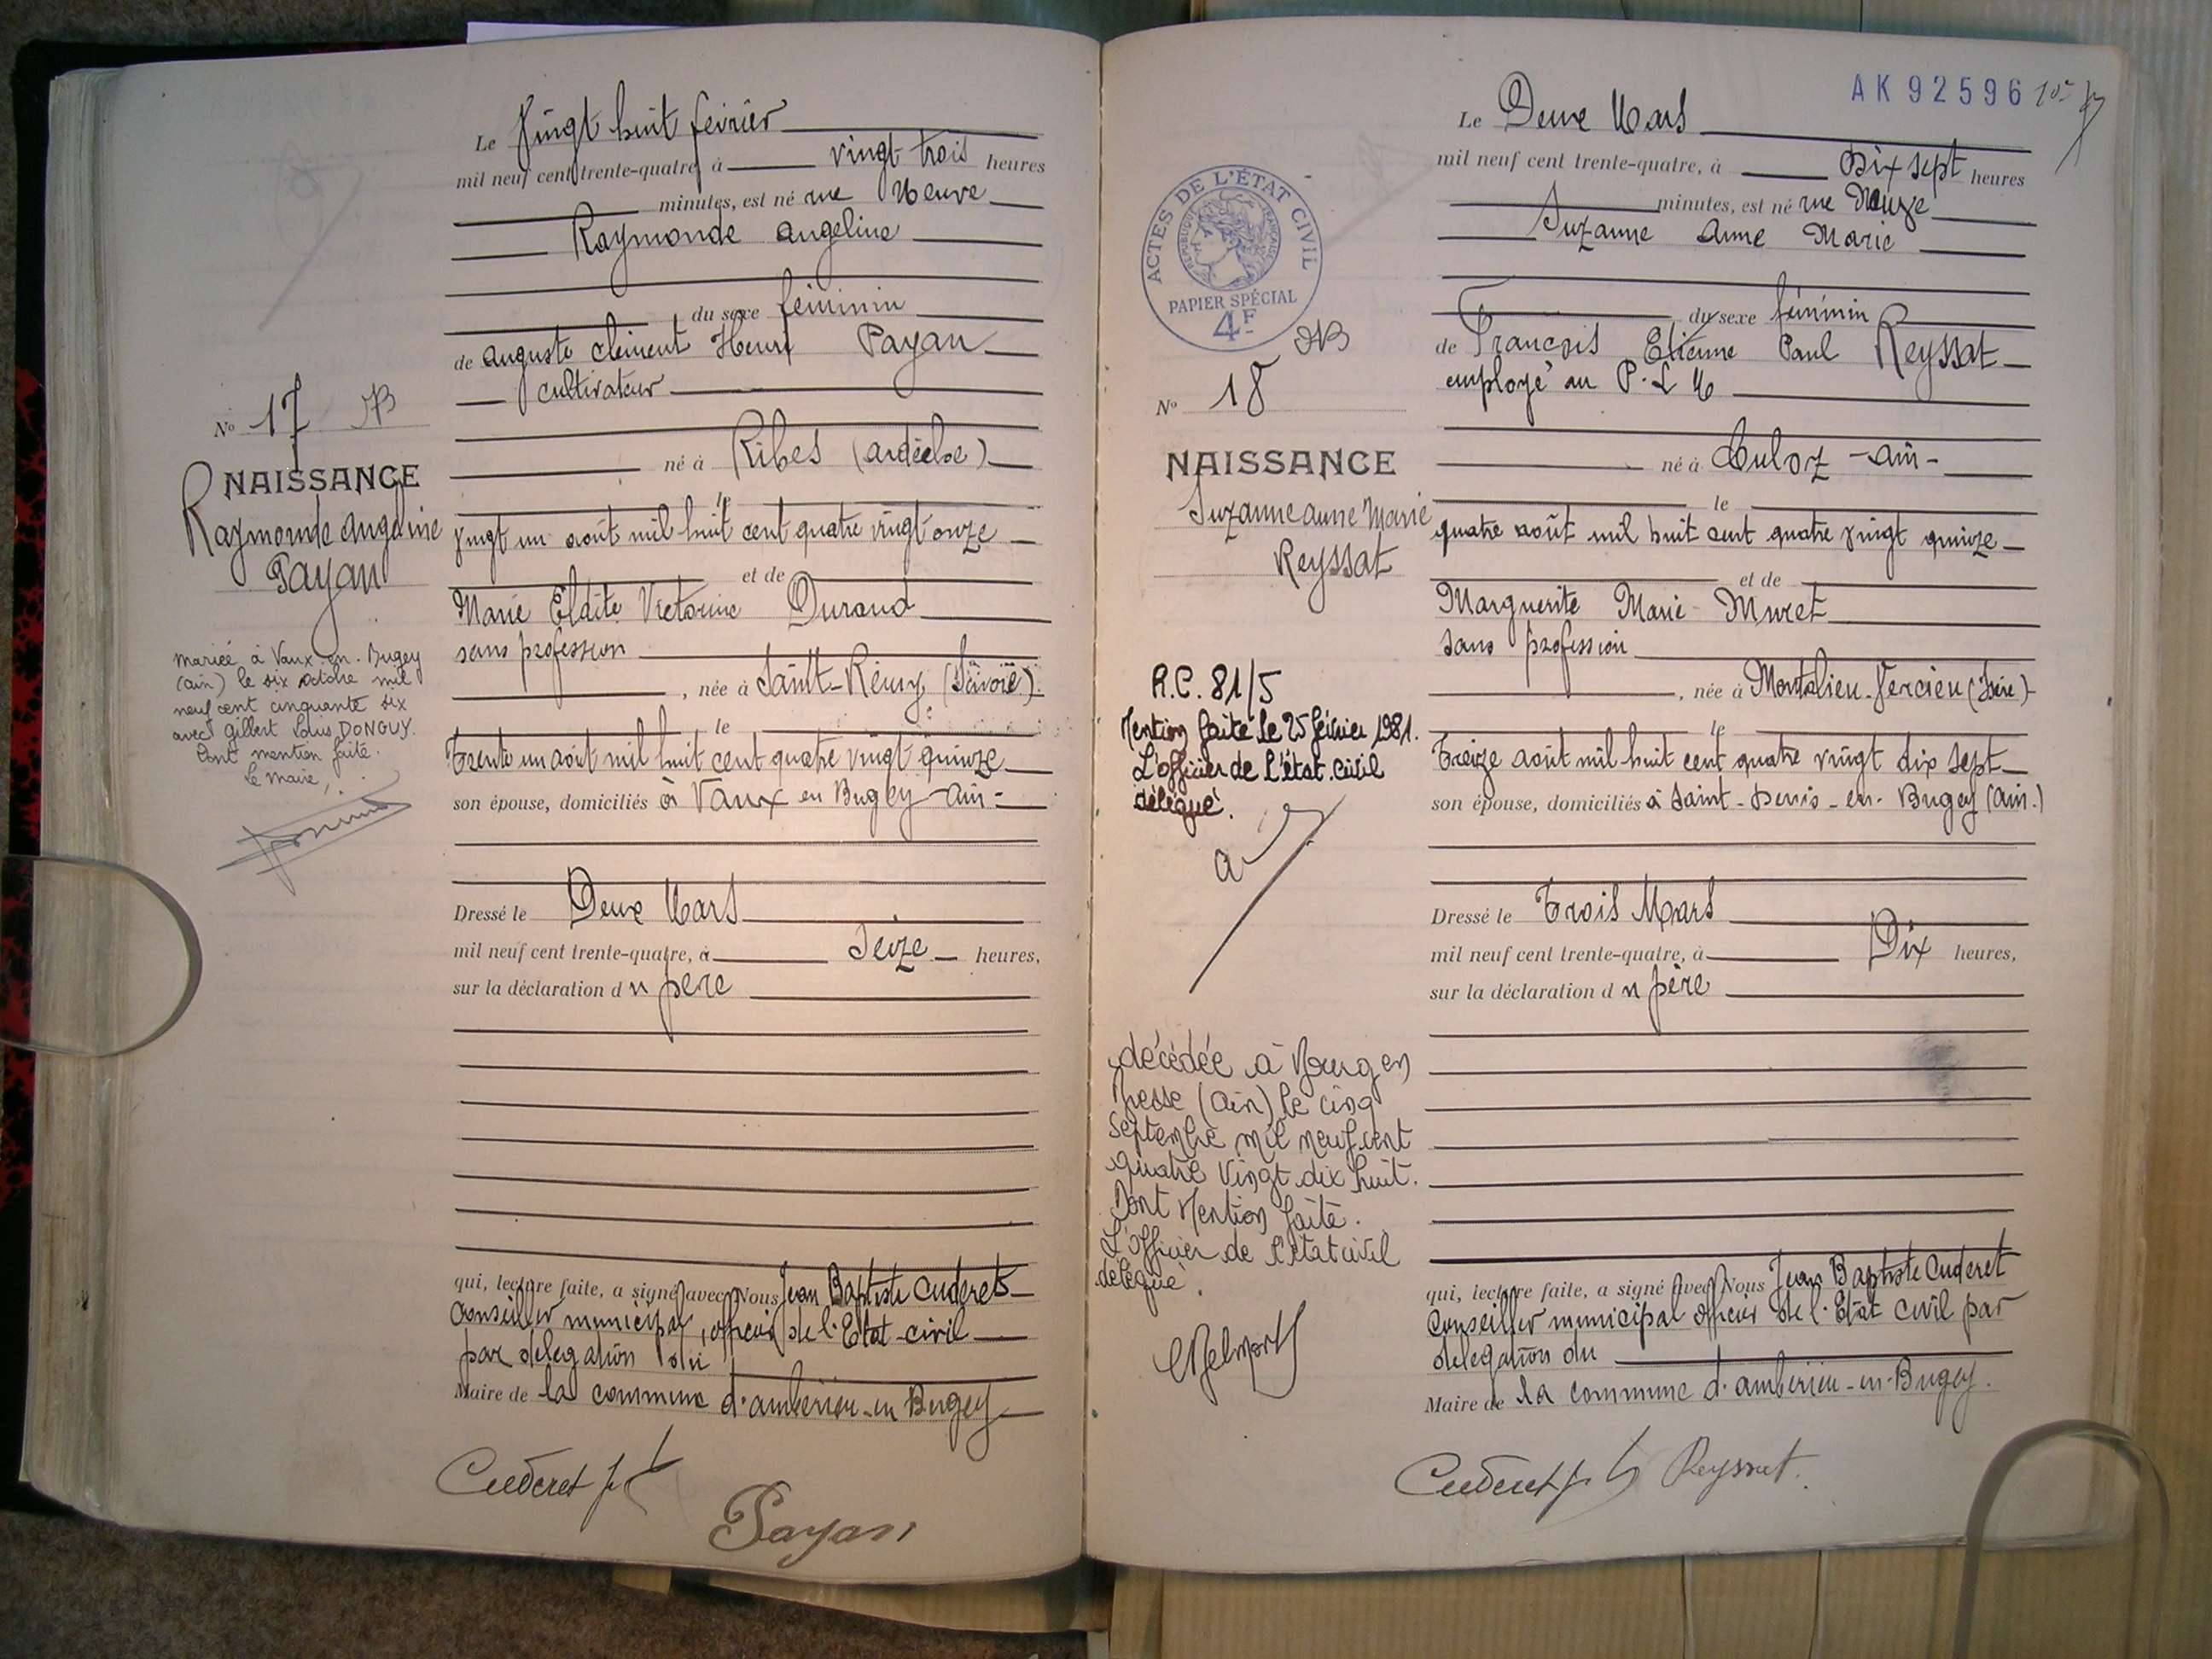 Le Vingt huit février
mil neuf cent trente-quatre, à vingt trois heures
minutes, est né rue Neuve
Raymonde Angeline
du sexe féminin
de Auguste Clément Henri Payan
cultivateur
né à Ribes (Ardèche)
le
vingt un août mil huit cent quatre vingt onze
et de
Marie Victorine Durand
sans profession
, née à Saint-Rémy (Savoie).
le
trente un août mil huit cent quatre vingt quinze
son épouse, domiciliés à Vaux en Bugey - Ain -
Dressé le Deux Mars
mil neuf cent trente-quatre, à Seize heures,
sur la déclaration du père
qui, lecture faite, a signé avec Nous Jean Baptiste Cuderet
Conseiller municipal, officier de l'Etat-civil
par délégation du
Maire de la commune d'Ambérieu-en Bugey
Cuderet
Payan
No 17
NAISSANCE
Raymonde Angeline
Payan
mariée à Vaux-en-Bugey
(Ain) le six octobre mil
neuf cent cinquante six
avec Gilbert Louis DONGUY.
Dont mention faite.
Le Maire,
AK 92596
Le Deux Mars
mil neuf cent trente-quatre, à Dix sept heures
minutes, est né rue Neuve
Suzanne Anne Marie
du sexe féminin
de François Etienne Paul Reyssat
employé au P.L.M
né à Culoz - Ain -
le
quatre août mil huit cent quatre vingt quinze
et de
Marguerite Marie Muret
sans profession
, née à Montalieu-Vercieu (Isère)
le
treize août mil huit cent quatre vingt dix sept
son épouse, domiciliés à Saint-Denis-en-Bugey (Ain.)
Dressé le Trois Mars
mil neuf cent trente-quatre, à Dix heures,
sur la déclaration du père
qui, lecture faite, a signé avec Nous Jean Baptiste Cuderet
Conseiller municipal officier de l'Etat civil par
délégation du
Maire de la commune d'Ambérieu-en-Bugey.
Cuderet Reyssat.
ACTES DE L'ÉTAT CIVIL
RÉPUBLIQUE FRANÇAISE
PAPIER SPÉCIAL
4F
No 18
NAISSANCE
Suzanne Anne Marie
Reyssat
R.C. 81/5
Mention faite le 25 février 1981.
L'officier de l'état civil
délégué.
décédée à Bourg en
Bresse (Ain) le cinq
Septembre mil neuf cent
quatre vingt dix huit.
Dont Mention faite.
L'Officier de l'état civil
délégué.